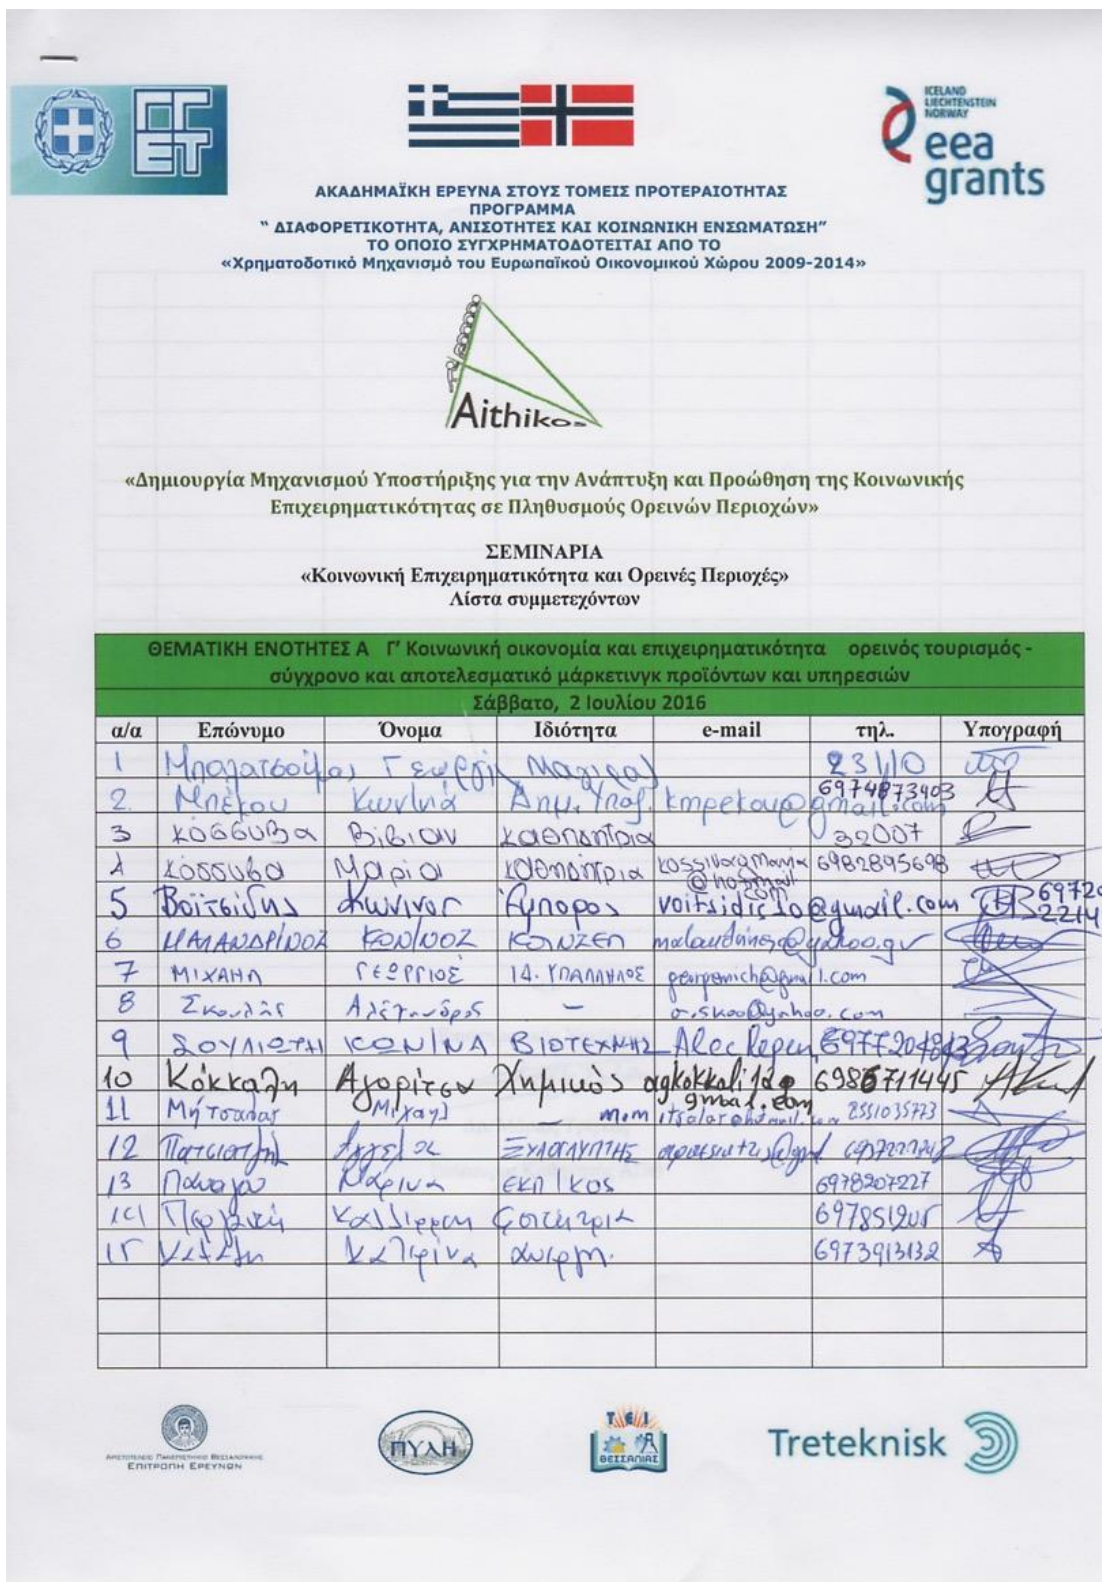 ΓΓΕΤ
ICELAND
LIECHTENSTEIN
NORWAY
eea
grants
ΑΚΑΔΗΜΑΪΚΗ ΕΡΕΥΝΑ ΣΤΟΥΣ ΤΟΜΕΙΣ ΠΡΟΤΕΡΑΙΟΤΗΤΑΣ
ΠΡΟΓΡΑΜΜΑ
“ ΔΙΑΦΟΡΕΤΙΚΟΤΗΤΑ, ΑΝΙΣΟΤΗΤΕΣ ΚΑΙ ΚΟΙΝΩΝΙΚΗ ΕΝΣΩΜΑΤΩΣΗ”
ΤΟ ΟΠΟΙΟ ΣΥΓΧΡΗΜΑΤΟΔΟΤΕΙΤΑΙ ΑΠΟ ΤΟ
«Χρηματοδοτικό Μηχανισμό του Ευρωπαϊκού Οικονομικού Χώρου 2009-2014»
Aithikos
«Δημιουργία Μηχανισμού Υποστήριξης για την Ανάπτυξη και Προώθηση της Κοινωνικής
Επιχειρηματικότητας σε Πληθυσμούς Ορεινών Περιοχών»
ΣΕΜΙΝΑΡΙΑ
«Κοινωνική Επιχειρηματικότητα και Ορεινές Περιοχές»
Λίστα συμμετεχόντων
ΘΕΜΑΤΙΚΗ ΕΝΟΤΗΤΕΣ Α Γ’ Κοινωνική οικονομία και επιχειρηματικότητα ορεινός τουρισμός -
σύγχρονο και αποτελεσματικό μάρκετινγκ προϊόντων και υπηρεσιών
Σάββατο, 2 Ιουλίου 2016
α/α Επώνυμο Όνομα Ιδιότητα e-mail τηλ. Υπογραφή
1 23110
2. Μπέκου Κων/νά Δημ. Υπαλ. kmpekou@gmail.com 6974873403
3 Κόσσυβα Βίβιαν Καθηγήτρια 32007
4 Κόσσυβα Μαρία Καθηγήτρια 6982895698
5 Βοϊτσίδης Κων/νος Έμπορος voitsidis10@gmail.com 69720
2214
6 ΜΑΛΑΝΔΡΙΝΟΣ ΚΩΝ/ΝΟΣ ΚΟΙΝΣΕΠ
7 ΜΙΧΑΗΛ ΓΕΩΡΓΙΟΣ ΙΔ. ΥΠΑΛΛΗΛΟΣ georgemich@gmail.com
8 Σκουλής Αλέξανδρος –
9 ΣΟΥΛΙΩΤΗ ΚΩΝ/ΝΑ ΒΙΟΤΕΧΝΗΣ
10 Κόκκαλη Αγορίτσα Χημικός 6986711445
gmail.com
11 Μήτσαλας Μιχαήλ 2551035773
12 ΞΥΛΟΓΛΥΠΤΗΣ
13 Μαρίνα ΕΚΠ/ΚΟΣ 6978207227
14 Καλλιρρόη Φοιτήτρια
15 Κατερίνα άνεργη. 6973913132
ΑΡΙΣΤΟΤΕΛΕΙΟ ΠΑΝΕΠΙΣΤΗΜΙΟ ΘΕΣΣΑΛΟΝΙΚΗΣ
ΕΠΙΤΡΟΠΗ ΕΡΕΥΝΩΝ
ΠΥΛΗ
Τ.Ε.Ι.
ΘΕΣΣΑΛΙΑΣ
Treteknisk